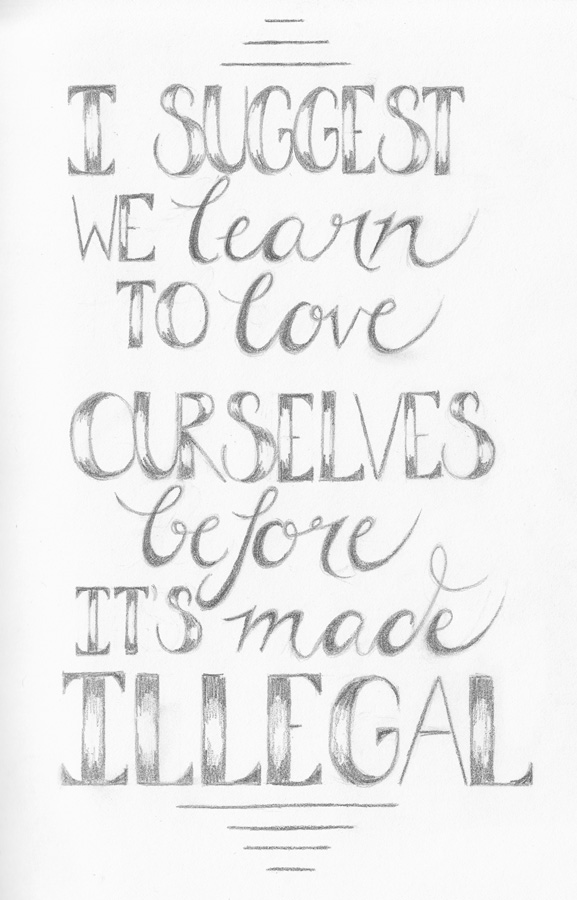 I SUGGEST
WE learn
TO love
OURSELVES
before
IT'S made
ILLEGAL